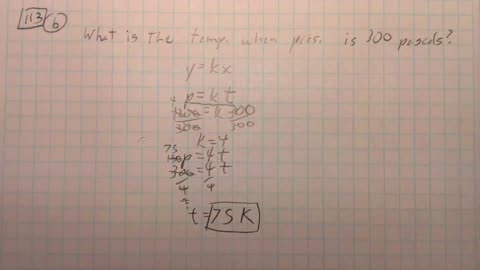 113 b
What is the temp. when pres. is 300 pascals?
y = kx
p = kt
1200 = k 300
300 300
k = 4
p = 4 t
300 = 4 t
4 4
t = 75 K